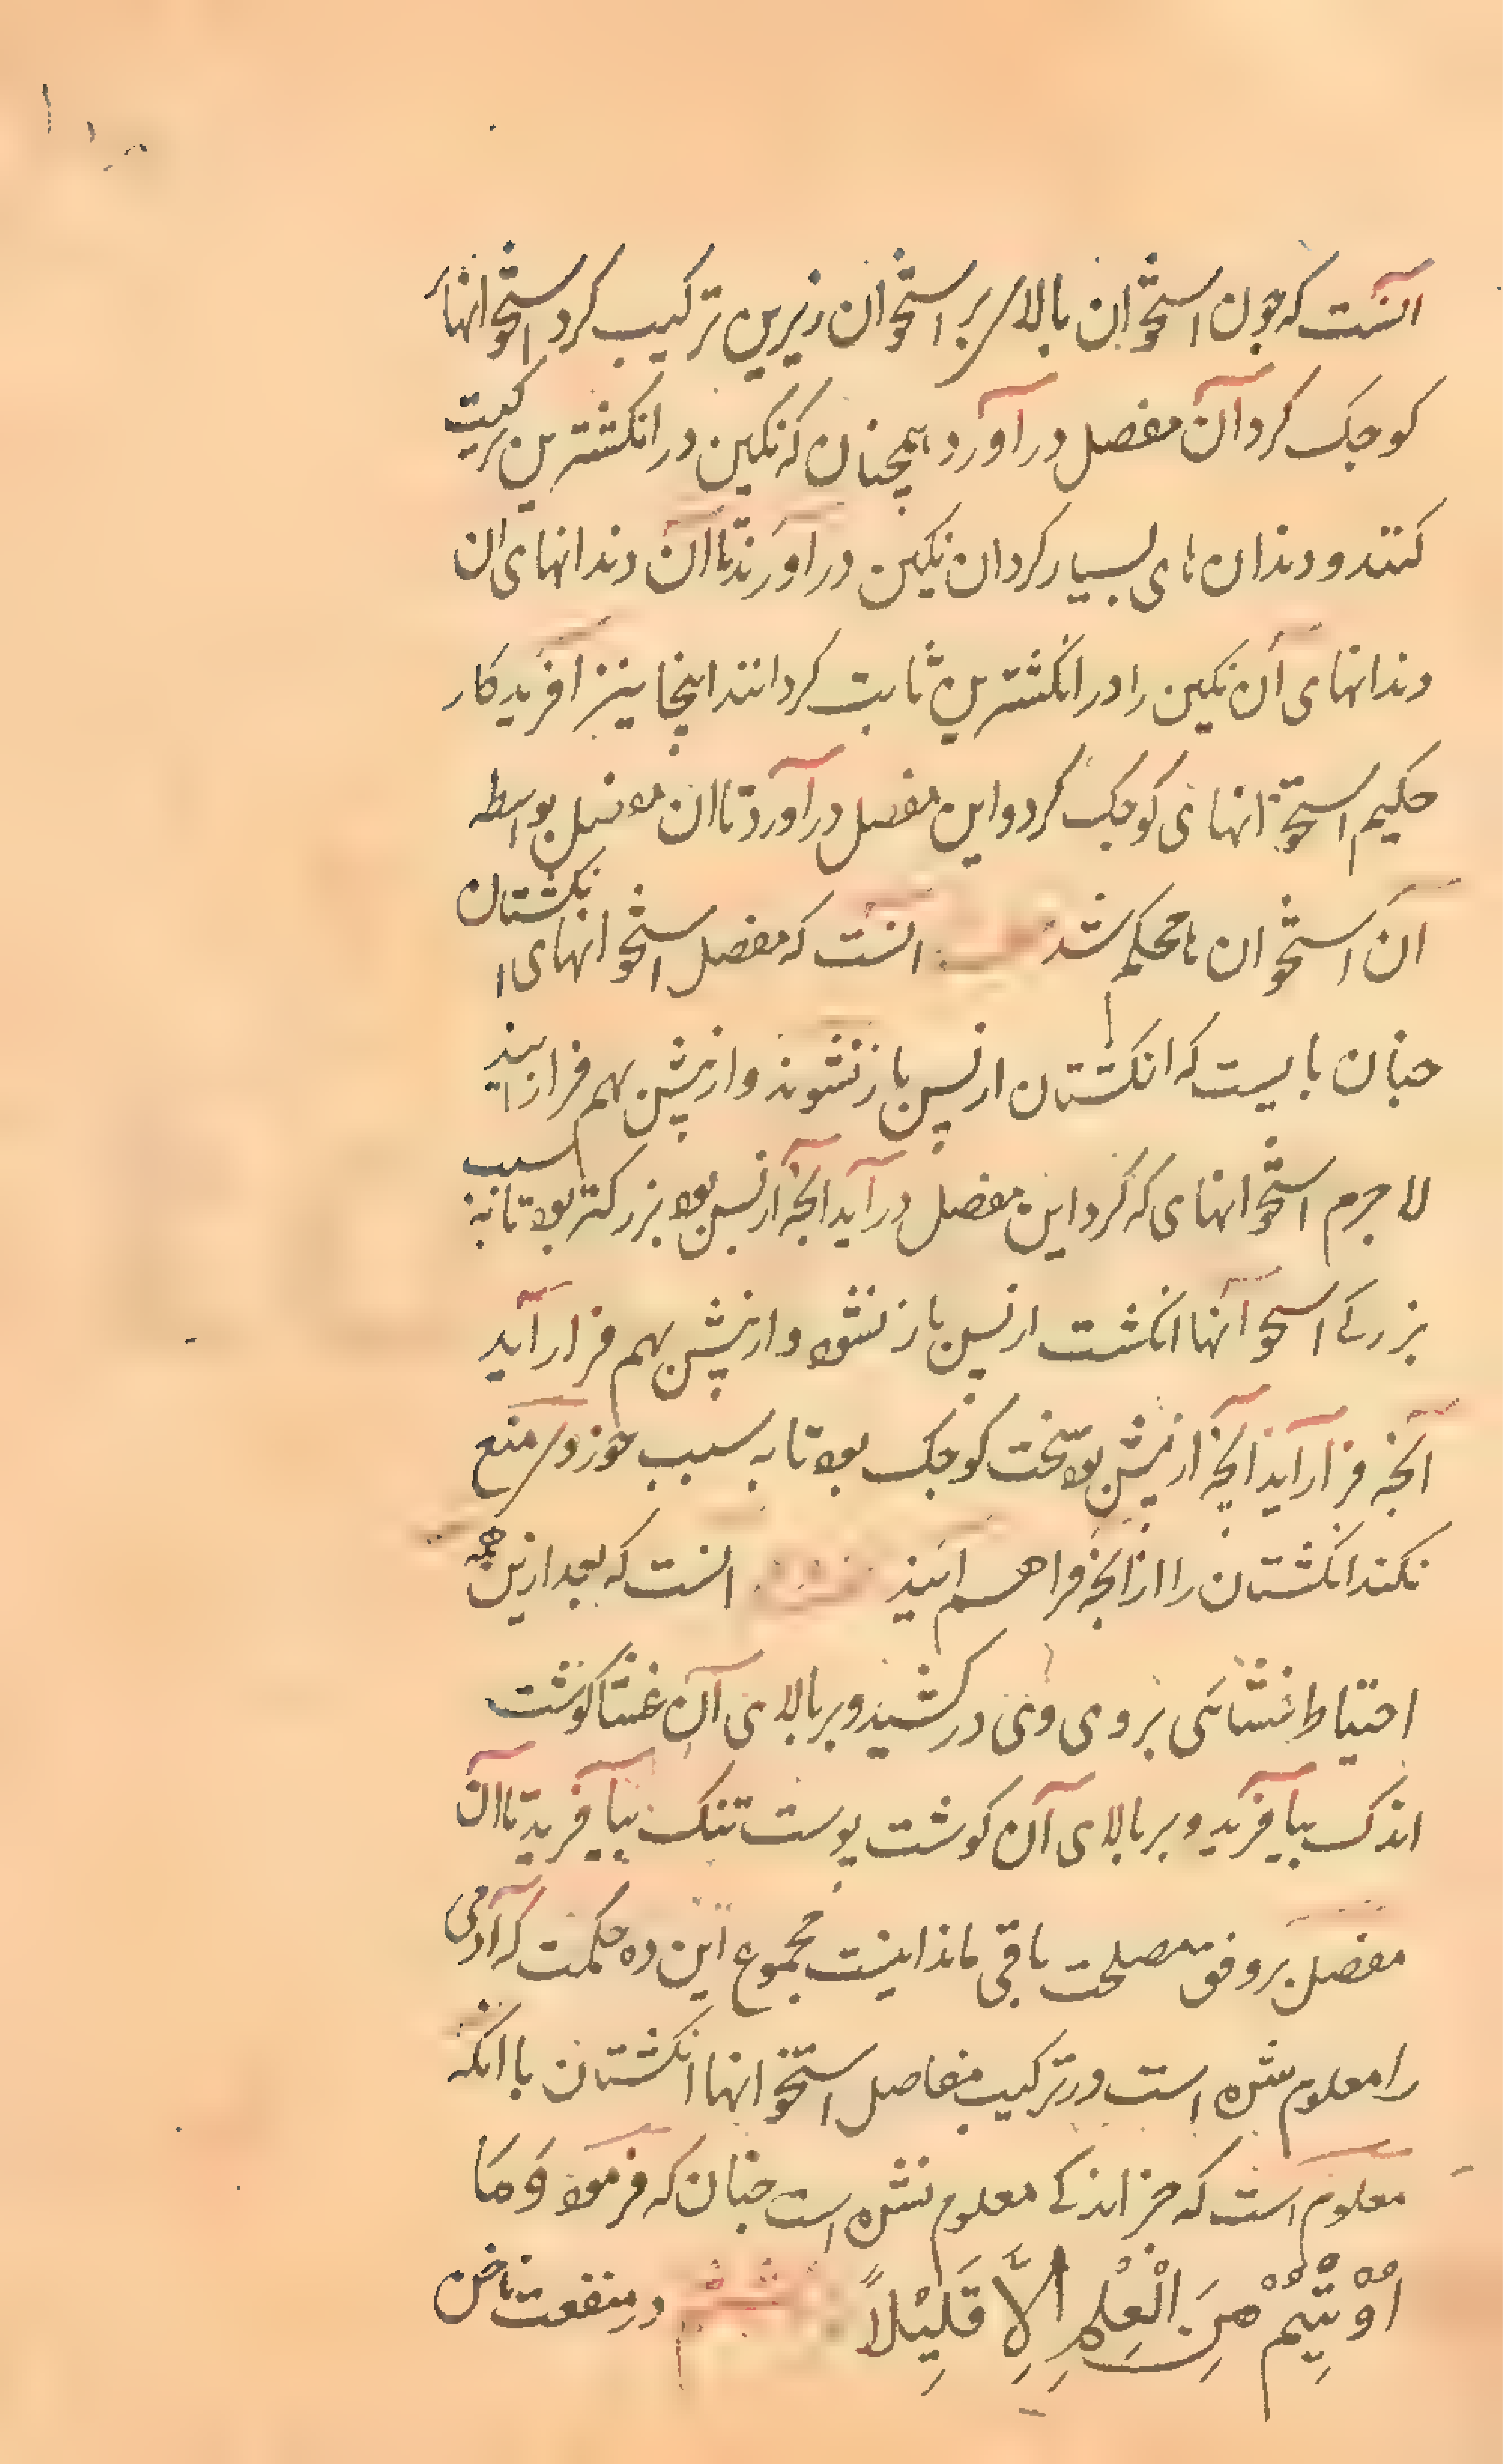 آنست که چون استخوان بالا بر سر استخوان زیرین ترکیب کرد استخوانهاء
کوچک کرد آن مفصل در آورد همچنان که نکین در انکشترین ترکیب
کنند و دندان های بسیار کرد ان نکین در آورند تا آن دندانهای ان
دندانهای آن نکین را در انکشترین ثابت کردانند اینجا نیز آفریدکار
حکیم استخوانهای کوچک کرد واین مفصل در آورد تا ان مفصل بواسطه
آن استخوان ها محکم شد آنست که مفصل استخوانهای انکشتان
چنان بایست که انکشتان از پس باز نشوند واز پیش بهم فراز ایند
لا جرم استخوانهای که کرد این مفصل در آید آنچه از پس بود بزرکتر بود تا به سبب
بزرکے استخوآنها انکشت از پس باز نشود واز پیش بهم فراز آید
آنچه فراز آید آنچه از پیش بود سخت کوچک بود تا به سبب خوردی منع
نکند انکشتان را از آنچه فراهم ایند انست که بعد ازین همه
احتیاط غشائی بر وی وی در کشید و بر بالای آن غشا کوشت
اندک بیآفرید و بر بالای آن کوشت پوست تنک بیآفرید تا آن
مفصل بر وفق مصلحت باقی ماند اینست مجموع این ده حکمت که آدمی
را معلوم شده است در ترکیب مفاصل استخوانها انکشتان با آنکه
معلوم است که جز اندکے معلوم نشده است چنان که فرمود وَمَا
اُوْتِیْتُمْ مِنَ الْعِلْمِ اِلَّا قَلِیْلاً ششم در منفعت ناخن